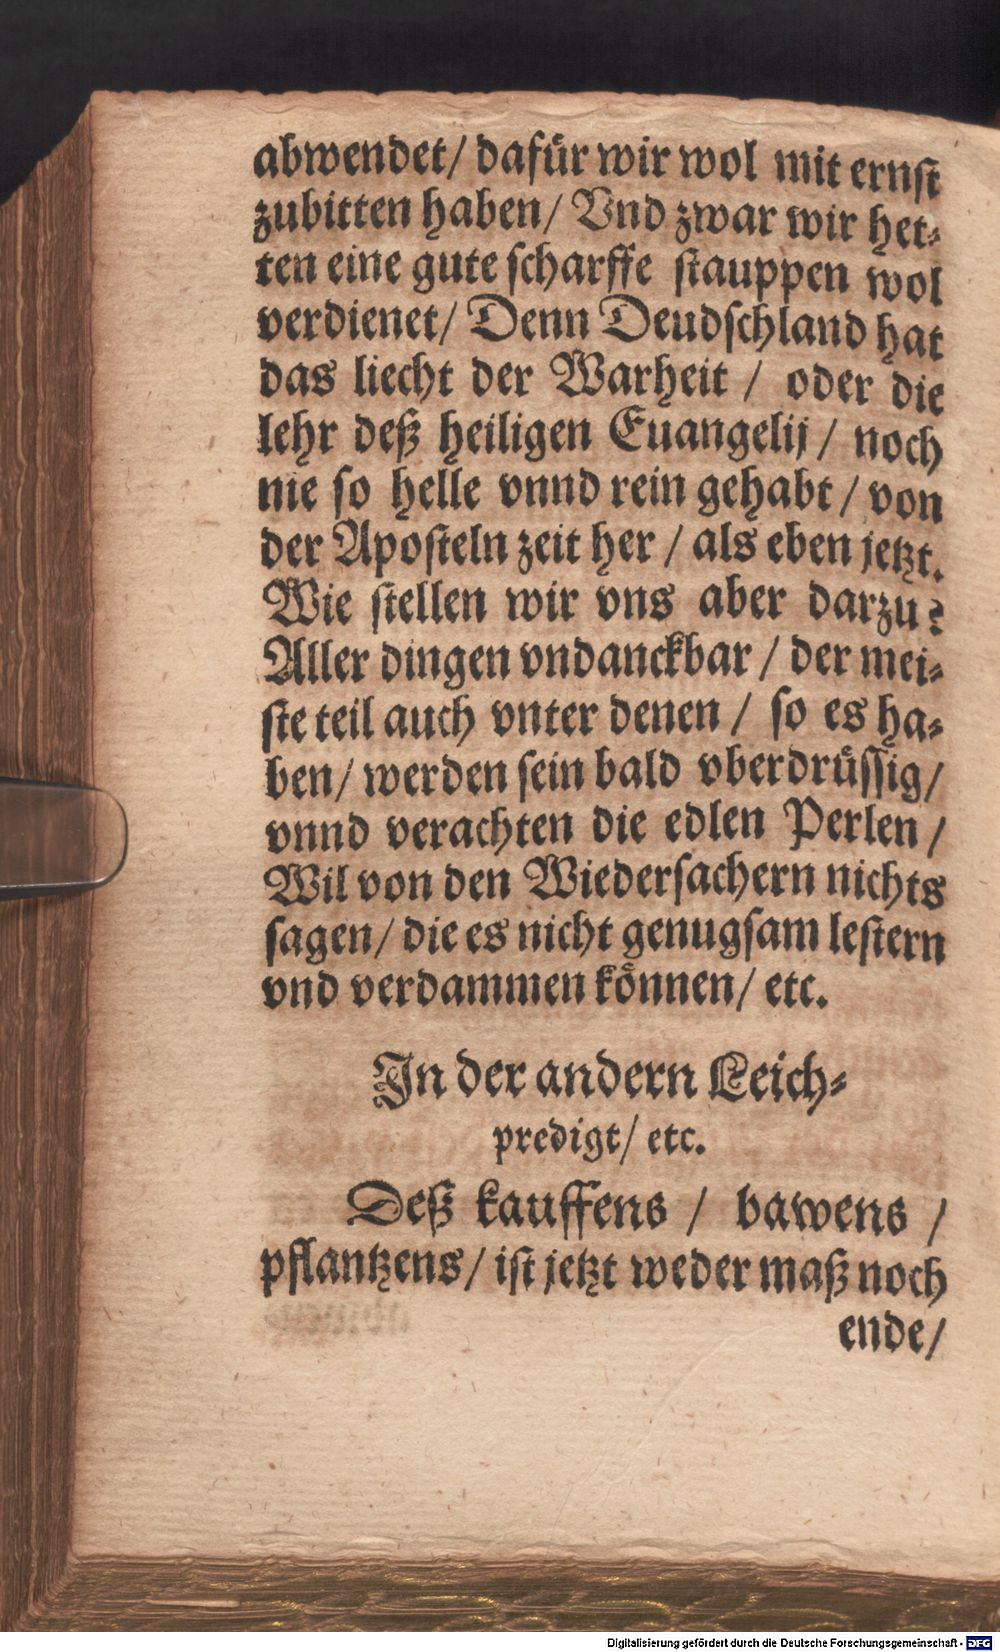 abwendet/ dafür wir wol mit ernst
zubitten haben/ Vnd zwar wir het-
ten eine gute scharffe stauppen wol
verdienet/ Denn Deudschland hat
das liecht der Warheit / oder die
lehr deß heiligen Euangelij / noch
nie so helle vnnd rein gehabt / von
der Aposteln zeit her / als eben jetzt.
Wie stellen wir vns aber darzu?
Aller dingen vndanckbar / der mei-
ste teil auch vnter denen / so es ha-
ben/ werden sein bald vberdrüssig/
vnnd verachten die edlen Perlen /
Wil von den Wiedersachern nichts
sagen/ die es nicht genugsam lestern
vnd verdammen können/ etc.
In der andern Leich-
predigt/ etc.
Deß kauffens / bawens /
pflantzens/ ist jetzt weder maß noch
ende/
Digitalisierung gefördert durch die Deutsche Forschungsgemeinschaft - DFG